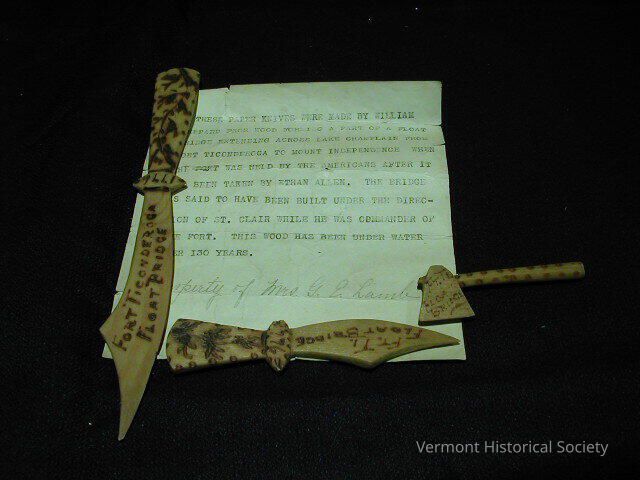 THESE PAPER KNIVES WERE MADE BY WILLIAM
FROM WOOD FORMING A PART OF A FLOAT
EXTENDING ACROSS LAKE CHAMPLAIN FROM
TICONDEROGA TO MOUNT INDEPENDENCE WHEN
WAS HELD BY THE AMERICANS AFTER IT
BEEN TAKEN BY ETHAN ALLEN. THE BRIDGE
SAID TO HAVE BEEN BUILT UNDER THE DIREC-
ION OF ST. CLAIR WHILE HE WAS COMMANDER OF
FORT. THIS WOOD HAS BEEN UNDER WATER
ER 130 YEARS.
perty of Mrs G. E. Lamb
FORT TICONDEROGA
FLOAT BRIDGE
FT. TI.
FLOAT BRIDGE
Vermont Historical Society